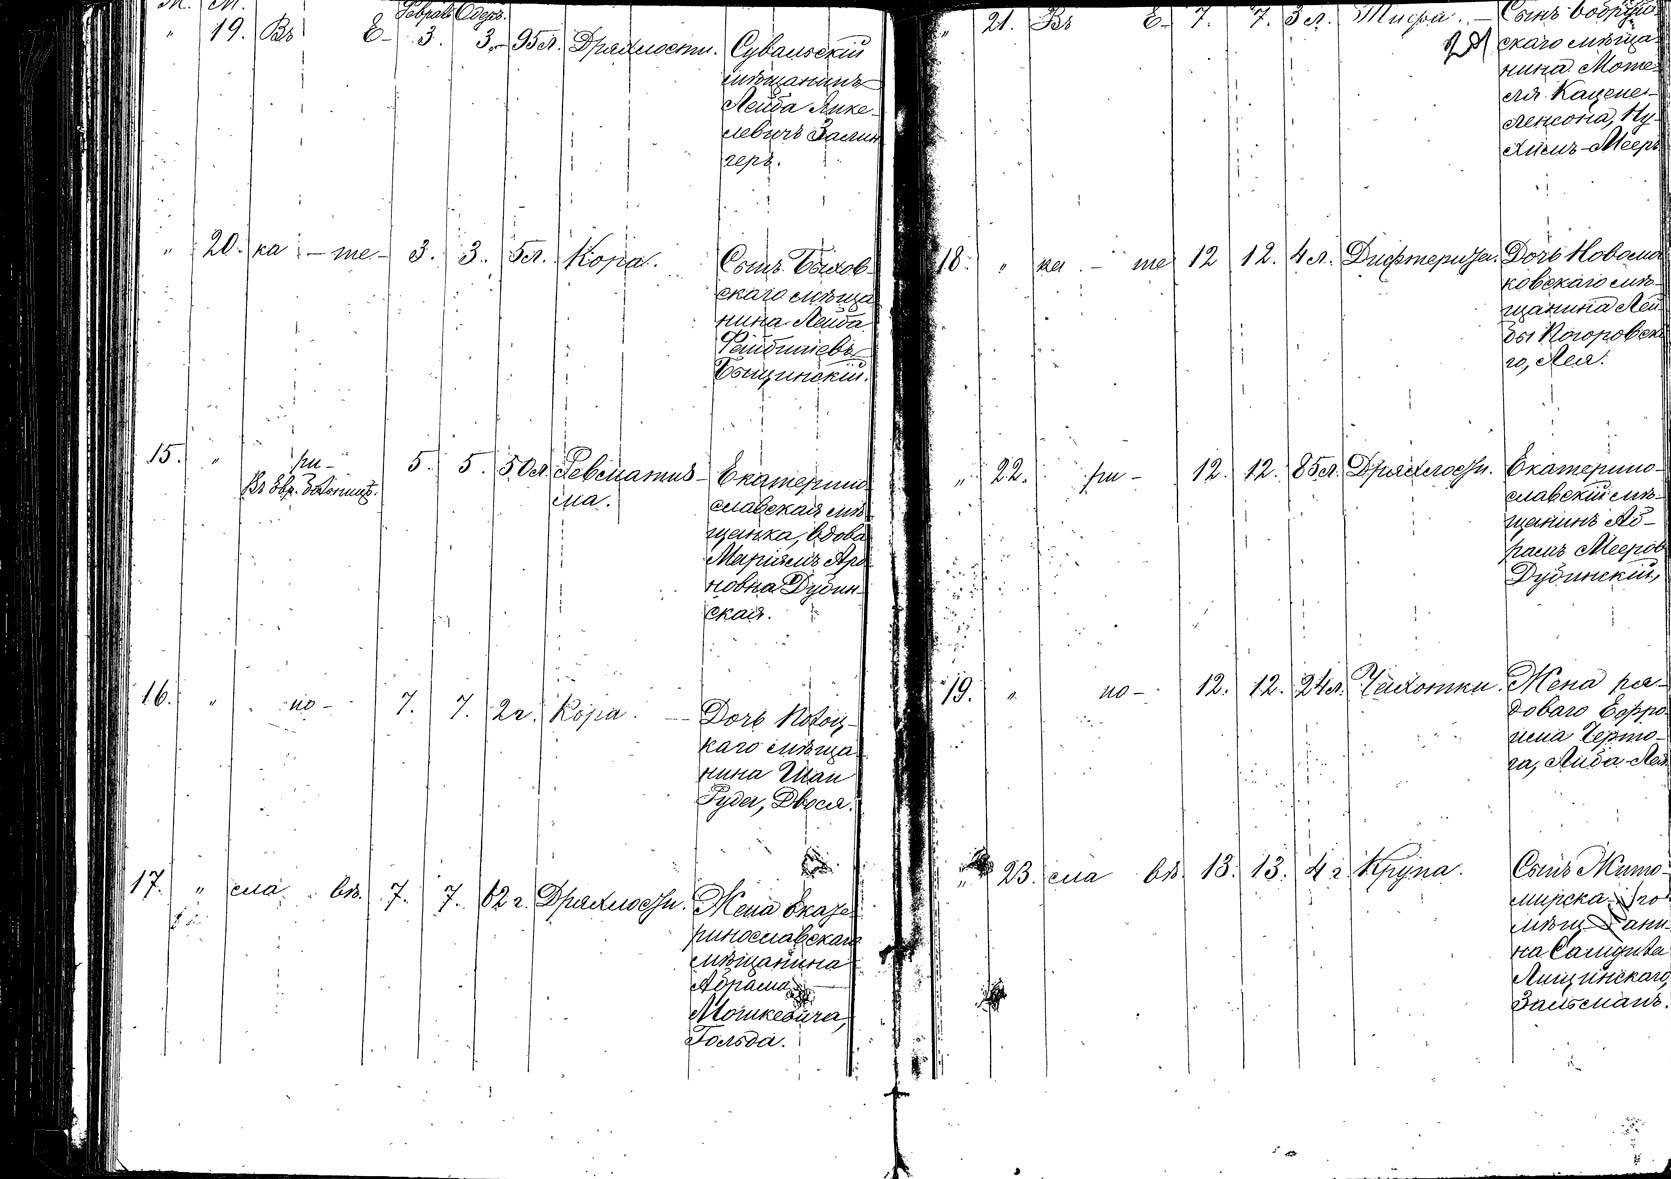 М. М.
Февраль Одеръ.
" 19. Въ Е- 3. 3. 95л. Дряхлости. Сувальскій
мѣщанинъ
Лейба Янке-
левичъ Залин
геръ.
" 20. ка - те- 3. 3. 5л. Кора. Сынъ Быхов-
скаго мѣща
нина Лейба
Фейбишевъ
Быщинскій.
15. " ри- 5. 5. 50л. Ревматиз- Екатерино
Въ Евр. больницѣ. ма. славская мѣ-
щанка, вдова
Маріямъ Аро
новна Дубин-
ская.
16. " но- 7. 7. 2г. Кора. Дочь Полоц-
каго мѣща
нина Шаи
Рудег, Двося.
17. " сла вѣ. 7. 7. 62г. Дряхлости. Жена Екате-
ринославскаго
мѣщанина
Абрама
Мошкевича,
Гольда.
" 21. Въ Е- 7. 7. 3л. Тифа. Сынъ Бобруй-
скаго мѣща-
нина Моте-
ля Каценел-
ленсона, Ну-
химъ-Мееръ
18. " ка - те 12 12. 4л. Дифтерита. Дочь Новомос
ковскаго мѣ-
щанина Лей
бы Погоровска
го, Лея.
" 22. ри- 12. 12. 85л. Дряхлости. Екатерино-
славскій мѣ-
щанинъ Аб-
рамъ Мееров
Дубинскій,
19. " но- 12. 12. 24л. Чахотки. Жена ря-
доваго Ефро
има Черто-
га, Либа-Лея
" 23. сла вѣ. 13. 13. 4г. Крупа. Сынъ Жито-
мирска-го
мѣщ-ани-
на Самуила
Лищинскаго,
Залтсманъ.